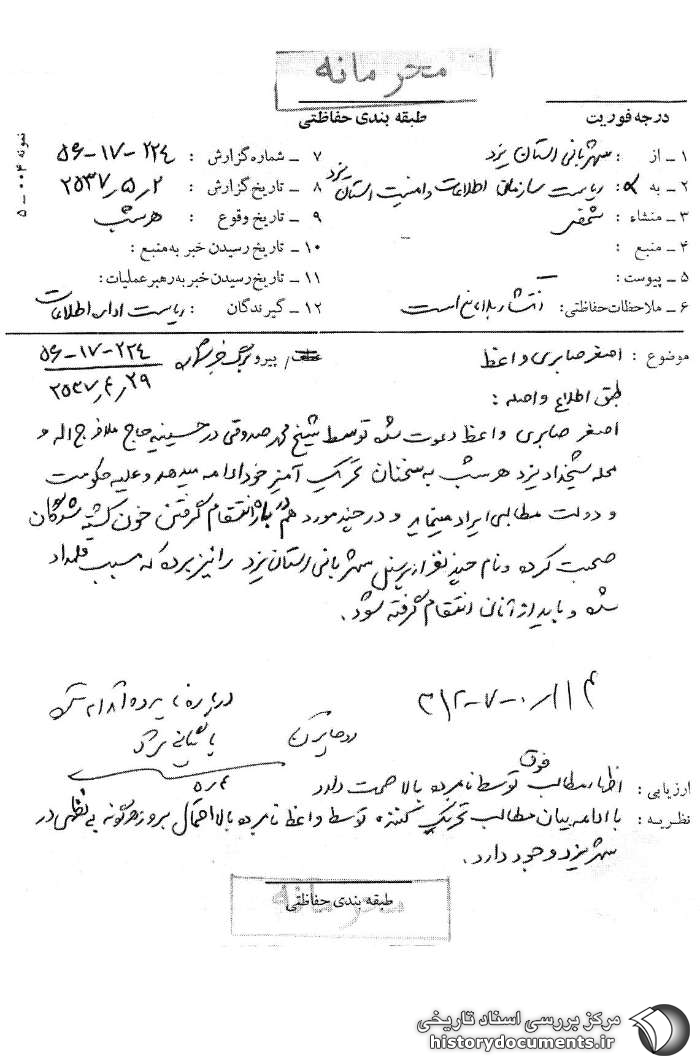 محرمانه
درجه فوریت
طبقه بندی حفاظتی
نمونه ۰۰۴ ـ ۵
۱ ـ از : شهربانی استان یزد
۲ ـ به : ریاست سازمان اطلاعات و امنیت استان یزد
۳ ـ منشاء : شخصی
۴ ـ منبع :
۵ ـ پیوست: ـ
۶ ـ ملاحظات حفاظتی: انتشار بلامانع است
۷ ـ شماره گزارش : ۲۲۴-۱۷-۵۶
۸ ـ تاریخ گزارش : ۲۵۳۷٫۵٫۲
۹ ـ تاریخ وقوع : هر شب
۱۰ ـ تاریخ رسیدن خبر به منبع :
۱۱ ـ تاریخ رسیدن خبر به رهبر عملیات:
۱۲ ـ گیرندگان : ریاست اداره اطلاعات
موضوع : اصغر صابری واعظ / پیرو برگ خبر شماره ۲۲۴-۱۷-۵۶
۲۵۳۷٫۴٫۲۹
طبق اطلاع واصله :
اصغر صابری واعظ دعوت شده توسط شیخ محمد صدوقی در حسینیه حاج ملا فرج اله و
محله شیخداد یزد هر شب به سخنان تحریک آمیز خود ادامه میدهد و علیه حکومت
و دولت مطالبی ایراد مینماید و در چند مورد هم در باره انتقام گرفتن خون کشته شدگان
صحبت کرده و نام چند نفر از پرسنل شهربانی استان یزد را نیز برده که مسبب قلمداد
شده و باید از آنان انتقام گرفته شود .
درباره نامبرده
ارزیابی : اظهار مطالب فوق توسط نامبرده بالا صحت دارد
نظریه : با ادامه بیان مطالب تحریک کننده توسط واعظ نامبرده بالا احتمال بروز هرگونه بی نظمی در
شهر یزد وجود دارد .
طبقه بندی حفاظتی
محرمانه
مرکز بررسی اسناد تاریخی
historydocuments.ir